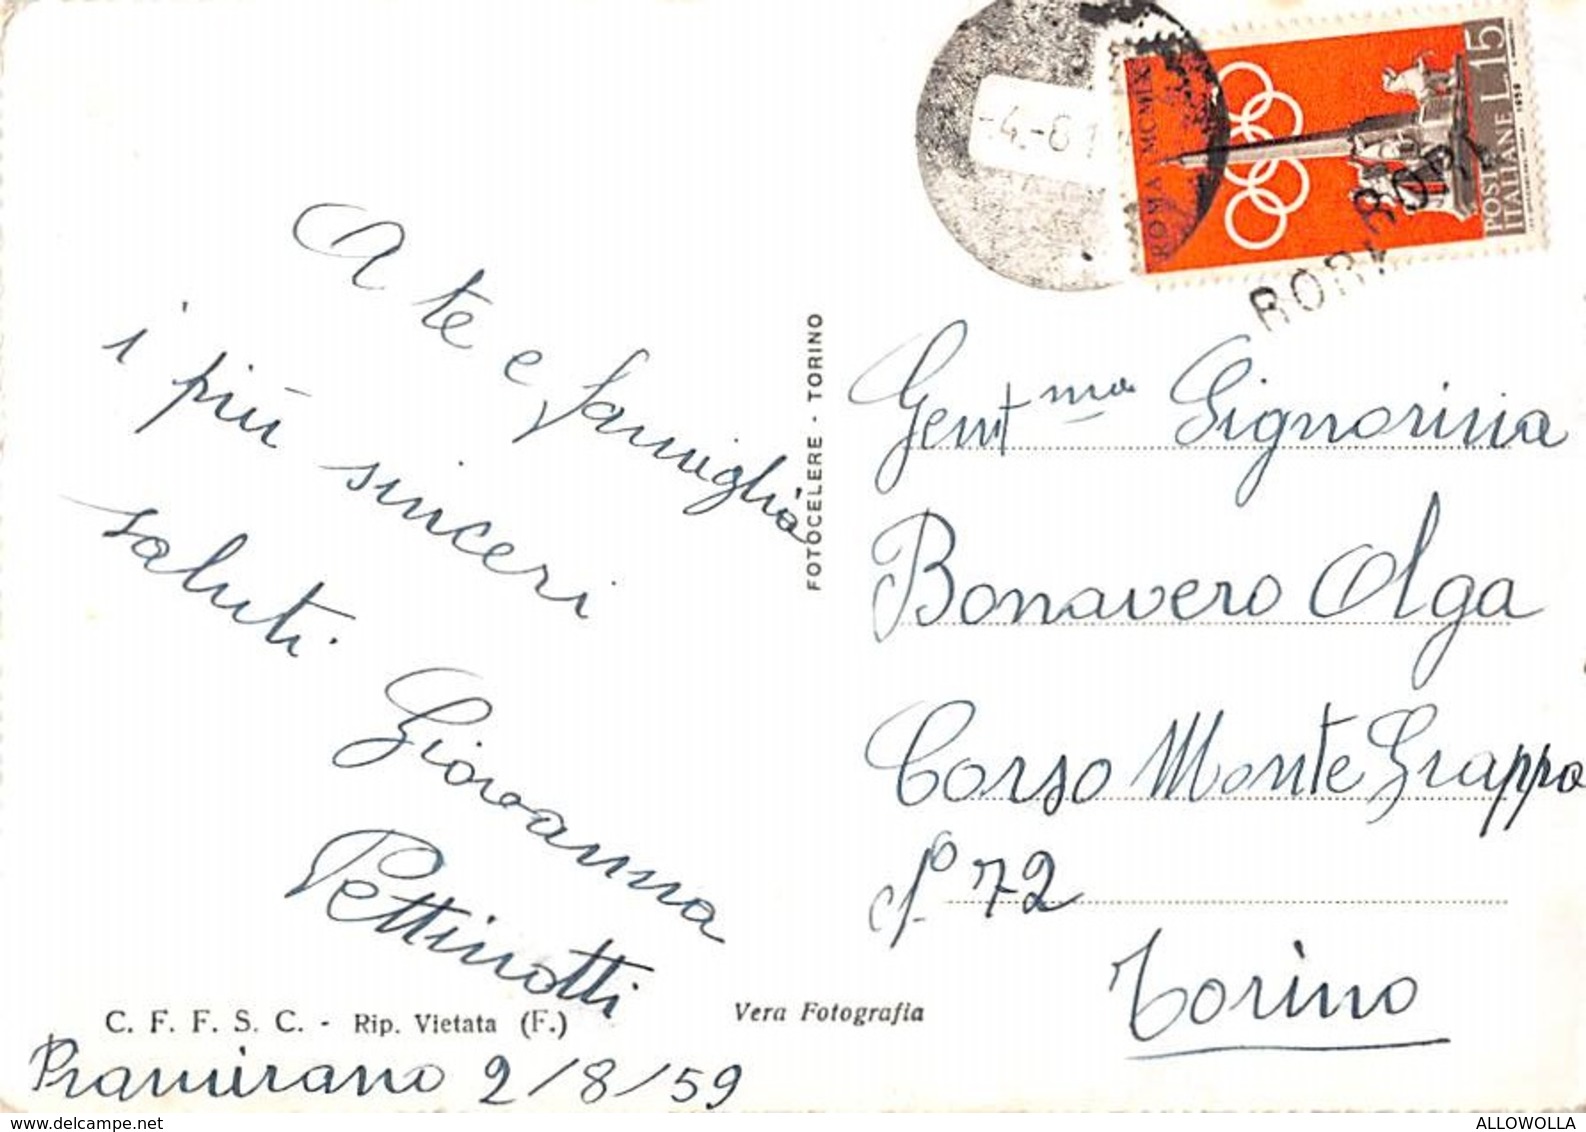 A te e famiglia
i più sinceri
saluti
Giovanna
Pettinotti
C. F. F. S. C. - Rip. Vietata (F.)
Vera Fotografia
Pramirano 2/8/59
FOTOCELERE - TORINO
ROMA MCMLX
POSTE ITALIANE L.15
1959
Gent.ma Signorina
Bonavero Olga
Corso Monte Grappa
72
Torino
www.delcampe.net
ALLOWOLLA